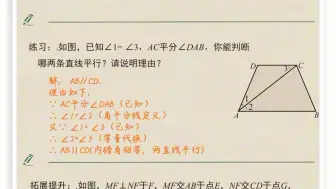 练习：.如图，已知∠1=∠3，AC平分∠DAB，你能判断
哪两条直线平行？请说明理由？
D
C
3
1
2
A
B
解：AB∥CD.
理由如下：
∵ AC平分∠DAB（已知）
∴ ∠1=∠2（角平分线定义）
又∵ ∠1=∠3（已知）
∴ ∠2=∠3（等量代换）
∴ AB∥CD（内错角相等，两直线平行）
拓展提升：.如图，MF⊥NF于F，MF交AB于点E，NF交CD于点G，